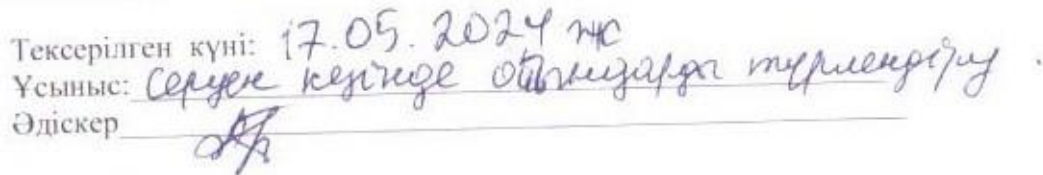 Тексерілген күні: 17.05.2024 жс
Ұсыныс: Серуен кезінде ойындарды түрлендіру.
Әдіскер